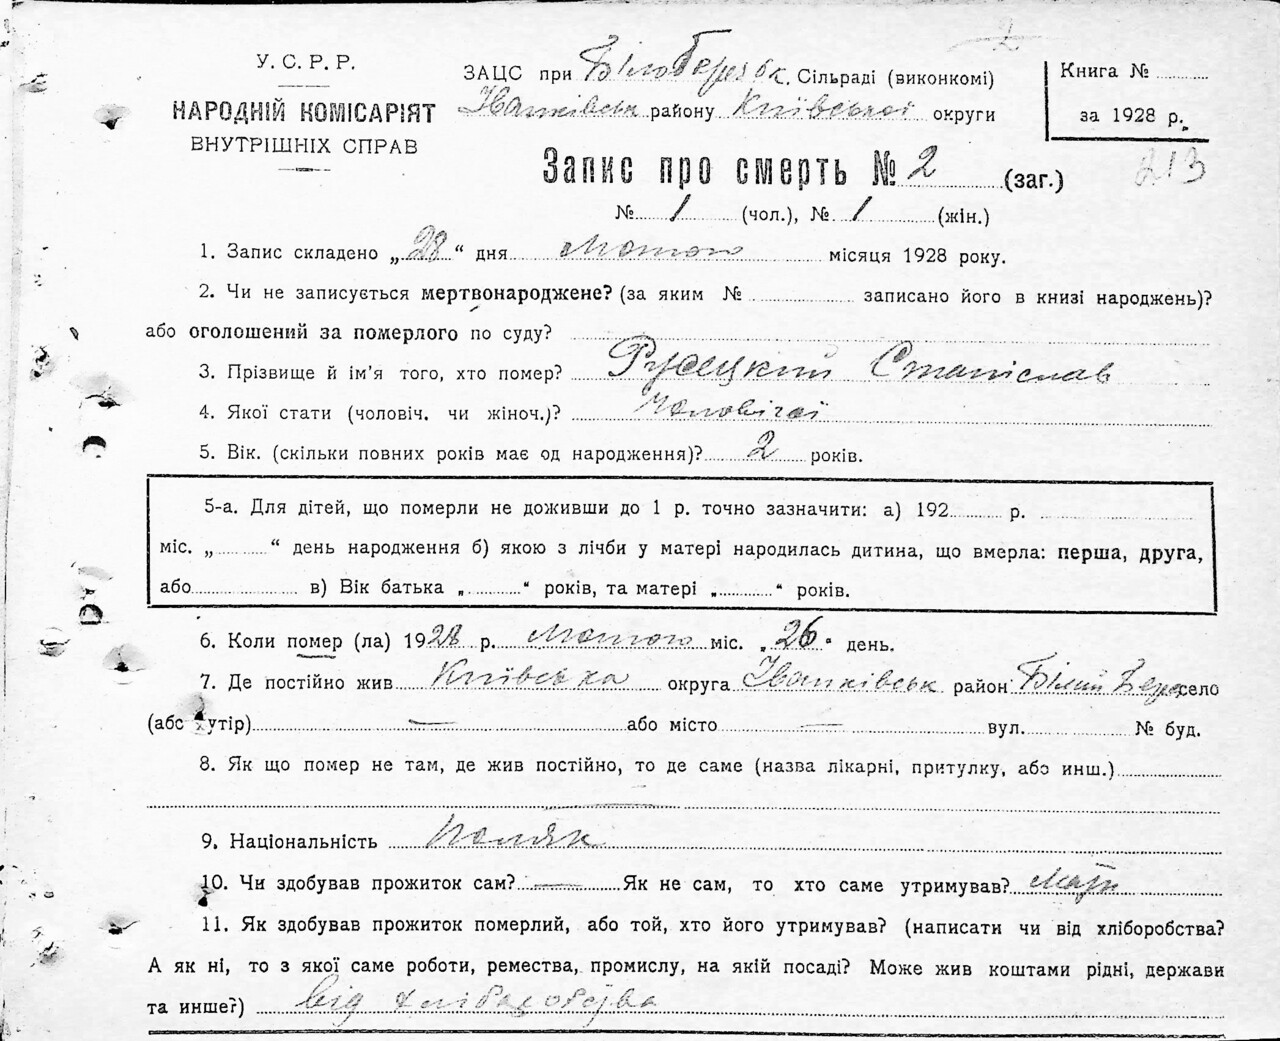 2
У. С. Р. Р.
НАРОДНІЙ КОМІСАРІЯТ
ВНУТРІШНІХ СПРАВ
ЗАЦС при Білоберезьк. Сільраді (виконкомі)
Іванківськ району Київської округи
Книга №
за 1928 р.
213
Запис про смерть № 2 (заг.)
№ 1 (чол.), № 1 (жін.)
1. Запис складено „28“ дня Лютого місяця 1928 року.
2. Чи не записується мертвонароджене? (за яким № записано його в книзі народжень)?
або оголошений за померлого по суду?
3. Прізвище й ім’я того, хто помер? Станіслав
4. Якої статі (чоловіч. чи жіноч.)? Чоловічої
5. Вік. (скільки повних років має од народження)? 2 років.
5-а. Для дітей, що померли не доживши до 1 р. точно зазначити: а) 192 р.
міс. „ “ день народження б) якою з лічби у матері народилась дитина, що вмерла: перша, друга,
або в) Вік батька „ “ років, та матері „ “ років.
6. Коли помер (ла) 1928 р. Лютого міс. „26“ день.
7. Де постійно жив Київська округа Іванківськ район Білий Берег село
(або хутір) — або місто — вул. № буд.
8. Як що помер не там, де жив постійно, то де саме (назва лікарні, притулку, або инш.)
9. Національність Поляк
10. Чи здобував прожиток сам? — Як не сам, то хто саме утримував? Мати
11. Як здобував прожиток померлий, або той, хто його утримував? (написати чи від хліборобства?
А як ні, то з якої саме роботи, ремества, промислу, на якій посаді? Може жив коштами рідні, держави
та инше?) від хліборобства